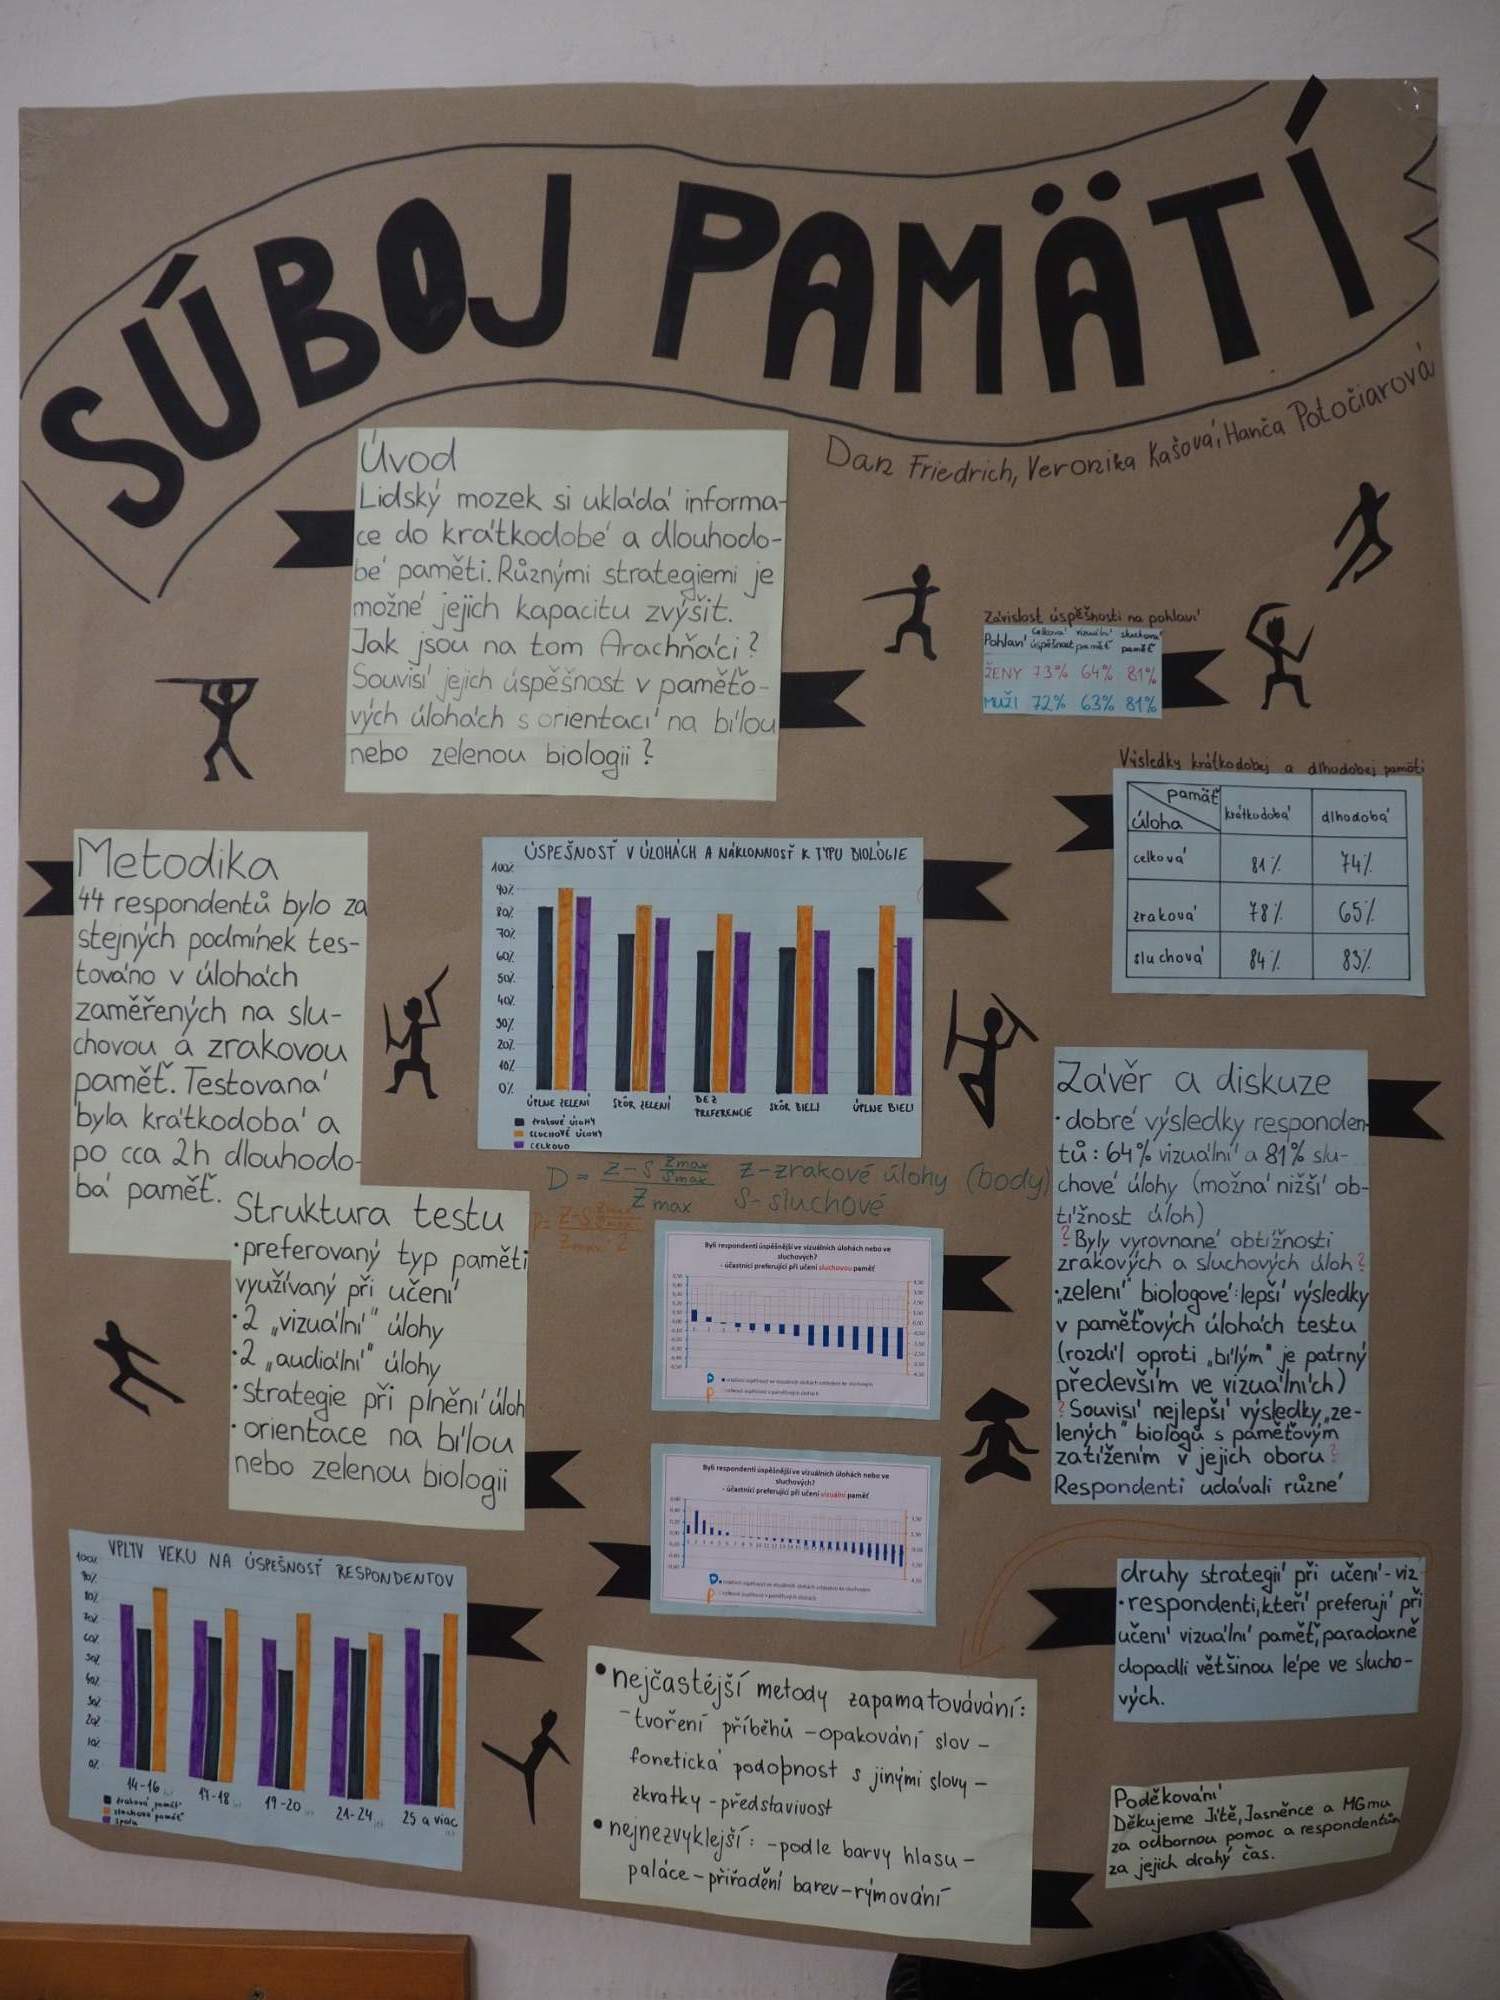 SÚBOJ PAMÄTÍ
Dan Friedrich, Veronika Kašová, Hanča Potočiarová
Úvod
Lidský mozek si ukládá informa-
ce do krátkodobé a dlouhodo-
bé paměti. Různými strategiemi je
možné jejich kapacitu zvýšit.
Jak jsou na tom Arachňáci?
Souvisí jejich úspěšnost v paměťo-
vých úlohách s orientací na bílou
nebo zelenou biologii?
Závislost úspěšnosti na pohlaví
Pohlaví celková úspěšnost vizuální paměť sluchová paměť
ŽENY 73% 64% 81%
MUŽI 72% 63% 81%
Výsledky krátkodobej a dlhodobej pamäti
pamäť
úloha krátkodobá dlhodobá
celková 81% 74%
zraková 78% 65%
sluchová 84% 83%
Metodika
44 respondentů bylo za
stejných podmínek tes-
továno v úlohách
zaměřených na slu-
chovou a zrakovou
paměť. Testovaná
byla krátkodobá a
po cca 2h dlouhodo-
bá paměť.
ÚSPEŠNOSŤ V ÚLOHÁCH A NÁKLONNOSŤ K TYPU BIOLÓGIE
100%
90%
80%
70%
60%
50%
40%
30%
20%
10%
0%
ÚPLNE ZELENÍ SKÔR ZELENÍ BEZ PREFERENCIE SKÔR BIELI ÚPLNE BIELI
ZRAKOVÉ ÚLOHY
SLUCHOVÉ ÚLOHY
CELKOVO
D = Z-S Zmax/Smax / Zmax Z-zrakové úlohy (body)
S-sluchové
Struktura testu
•preferovaný typ paměti
využívaný při učení
•2 „vizuální" úlohy
•2 „audiální" úlohy
•strategie při plnění úloh
•orientace na bílou
nebo zelenou biologii
Byli respondenti úspěšnější ve vizuálních úlohách nebo ve
sluchových?
- účastníci preferující při učení sluchovou paměť
D
P
Byli respondenti úspěšnější ve vizuálních úlohách nebo ve
sluchových?
- účastníci preferující při učení vizuální paměť
D
P
Závěr a diskuze
•dobré výsledky responden-
tů: 64% vizuální a 81% slu-
chové úlohy (možná nižší ob-
tížnost úloh)
?Byly vyrovnané obtížnosti
zrakových a sluchových úloh?
•„zelení" biologové: lepší výsledky
v paměťových úlohách testu
(rozdíl oproti „bílým" je patrný
především ve vizuálních)
?Souvisí nejlepší výsledky „ze-
lených" biologů s paměťovým
zatížením v jejich oboru?
Respondenti udávali různé
druhy strategií při učení - viz
•respondenti, kteří preferují při
učení vizuální paměť, paradoxně
dopadli většinou lépe ve slucho-
vých.
VPLYV VEKU NA ÚSPEŠNOSŤ RESPONDENTOV
100%
90%
80%
70%
60%
50%
40%
30%
20%
10%
0%
14-16 17-18 19-20 21-24 25 a viac
zraková pamäť
sluchová pamäť
spolu
•nejčastější metody zapamatovávání:
-tvoření příběhů -opakování slov -
fonetická podobnost s jinými slovy -
zkratky -představivost
•nejnezvyklejší: -podle barvy hlasu -
paláce -přiřadění barev -rýmování
Poděkování
Děkujeme Jitě, Jasněnce a MGmu
za odbornou pomoc a respondentům
za jejich drahý čas.